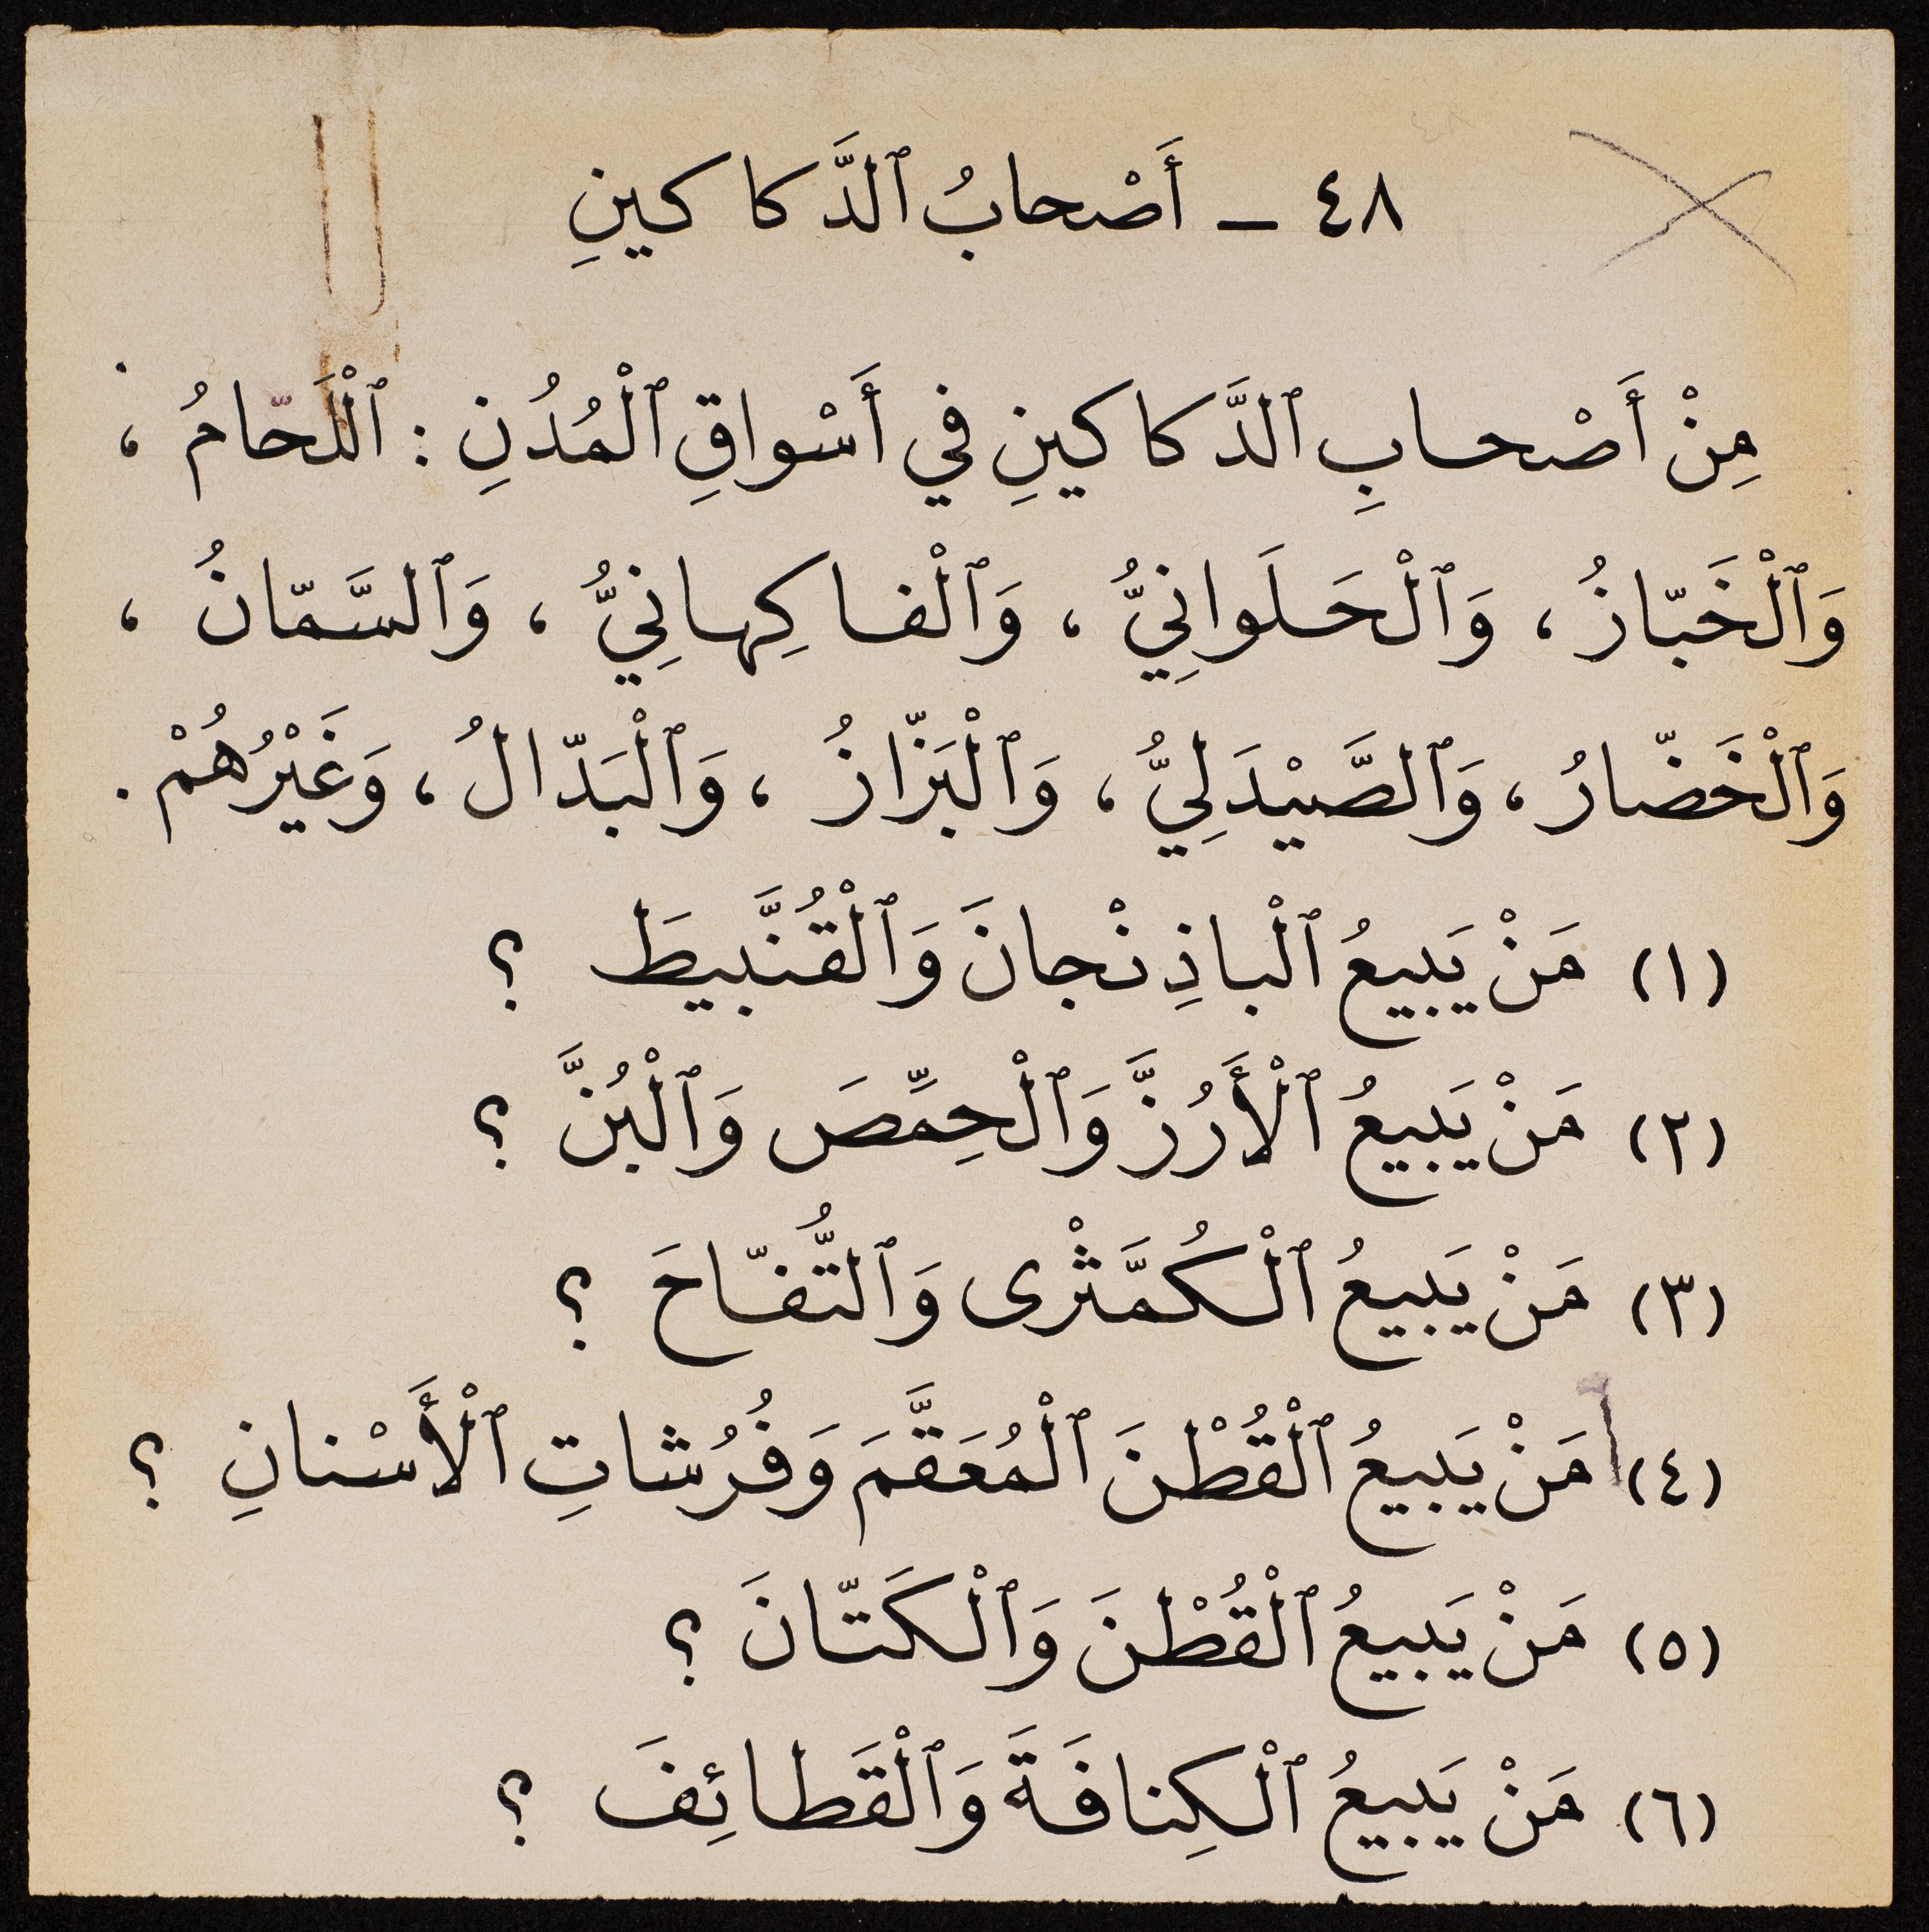 ٤٨ – أَصْحابُ ٱلدَّكاكينِ
مِنْ أَصْحابِ ٱلدَّكاكينِ في أَسْواقِ ٱلْمُدُنِ : ٱلْلَحّامُ ،
وَٱلْخَبّازُ ، وَٱلْحَلَوانيُّ ، وَٱلْفاكِهانِيُّ ، وَٱلسَّمّانُ ،
وَٱلْخَضّارُ ، وَٱلصَّيْدَلِيُّ ، وَٱلْبَزّازُ ، وَٱلْبَدّالُ ، وَغَيْرُهُمْ .
(١) مَنْ يَبيعُ ٱلْباذِنْجانَ وَٱلْقُنَّبيطَ ؟
(٢) مَنْ يَبيعُ ٱلْأَرُزَّ وَٱلْحِمِّصَ وَٱلْبُنَّ ؟
(٣) مَنْ يَبيعُ ٱلْكُمَّثْرى وَٱلتُّفّاحَ ؟
(٤) مَنْ يَبيعُ ٱلْقُطْنَ ٱلْمُعَقَّمَ وَفُرُشاتِ ٱلْأَسْنانِ ؟
(٥) مَنْ يَبيعُ ٱلْقُطْنَ وَٱلْكَتّانَ ؟
(٦) مَنْ يَبيعُ ٱلْكِنافَةَ وَٱلْقَطائِفَ ؟